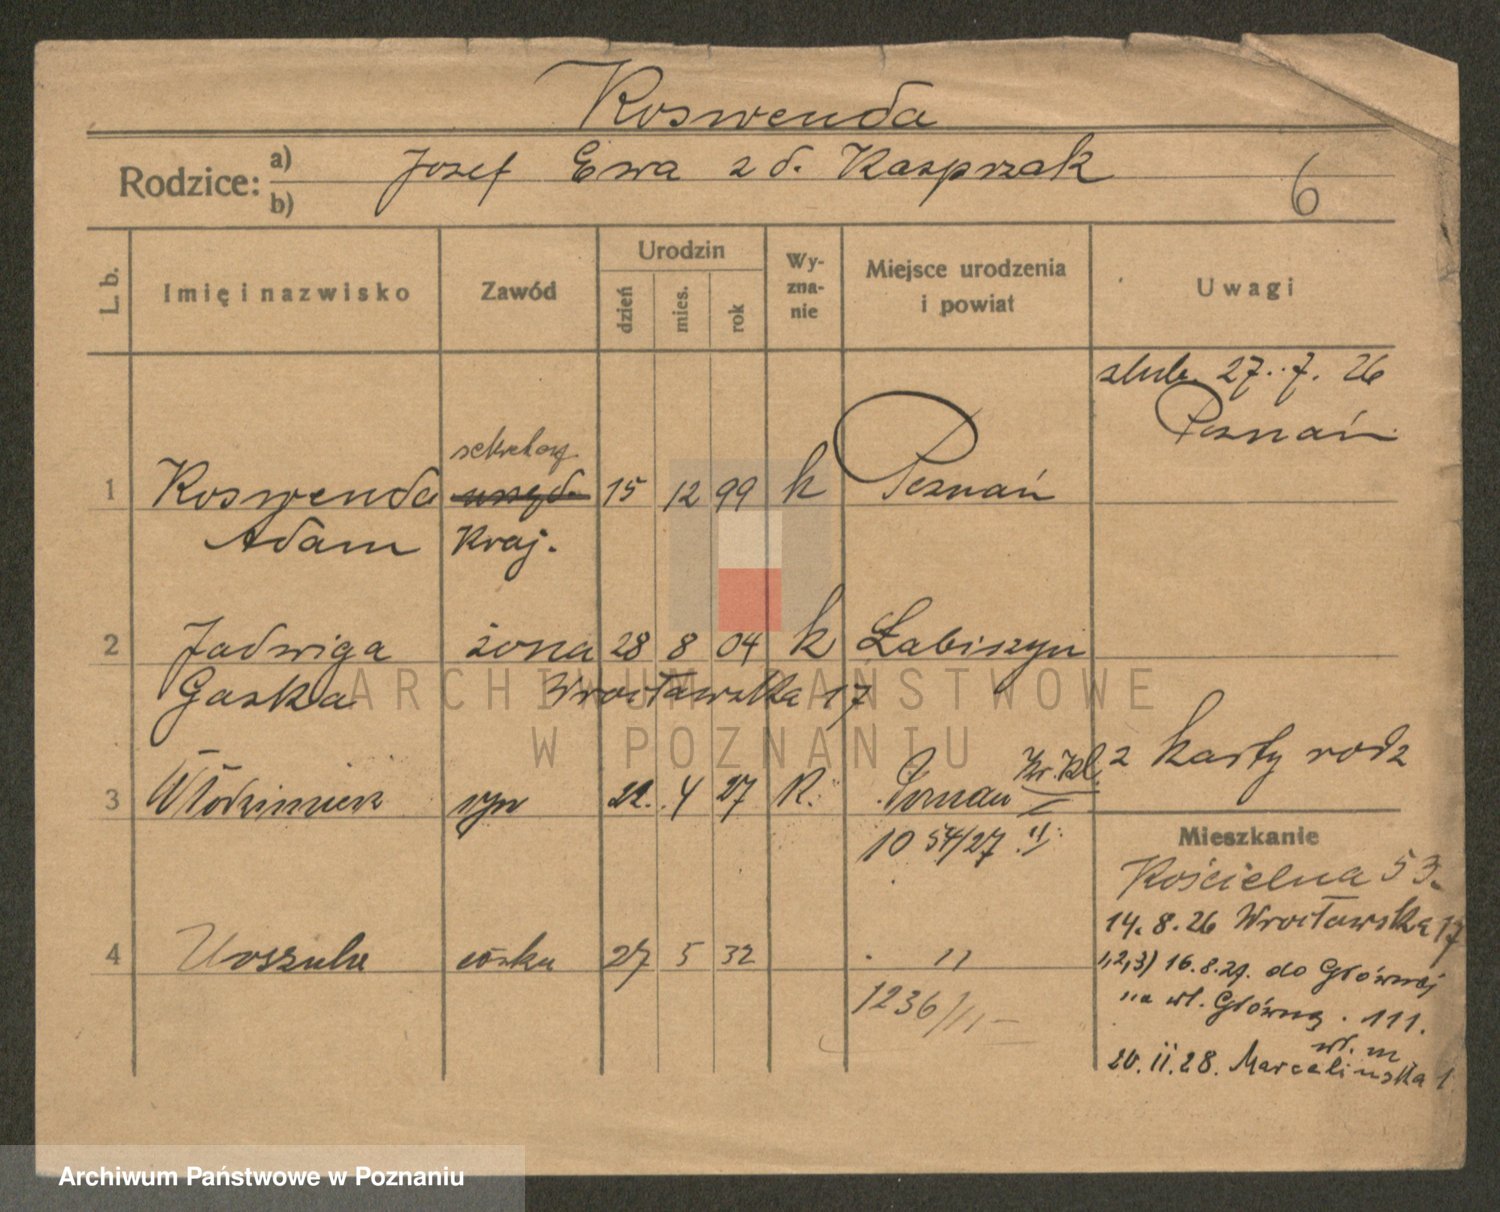 Roswenda
Rodzice: a) Josef Ewa z d. Kasprzak
b)
6
L. b.
Imię i nazwisko
Zawód
Urodzin
dzień
mies.
rok
Wy-
zna-
nie
Miejsce urodzenia
i powiat
Uwagi
ślub. 27. 7. 26
Poznań
sekretarz
1 Roswenda 15 12 99 k Poznań
Adam Kraj.
2 Jadwiga żona 28 8 04 k Łabiszyn
Gaska Wrocławska 17
2 karty rodz
3 Włodzimierz syn 22. 4 27 K. Poznań
1054/27 II
Mieszkanie
Kościelna 53.
14. 8. 26 Wrocławska 17
4 Urszula córka 27 5 32 "
1,2,3) 16. 8. 27. do Głównej
1236/II
na wł. Główną. 111.
wł. m
20. II. 28. Marcelińska 1
ARCHIWUM PAŃSTWOWE
W POZNANIU
Archiwum Państwowe w Poznaniu